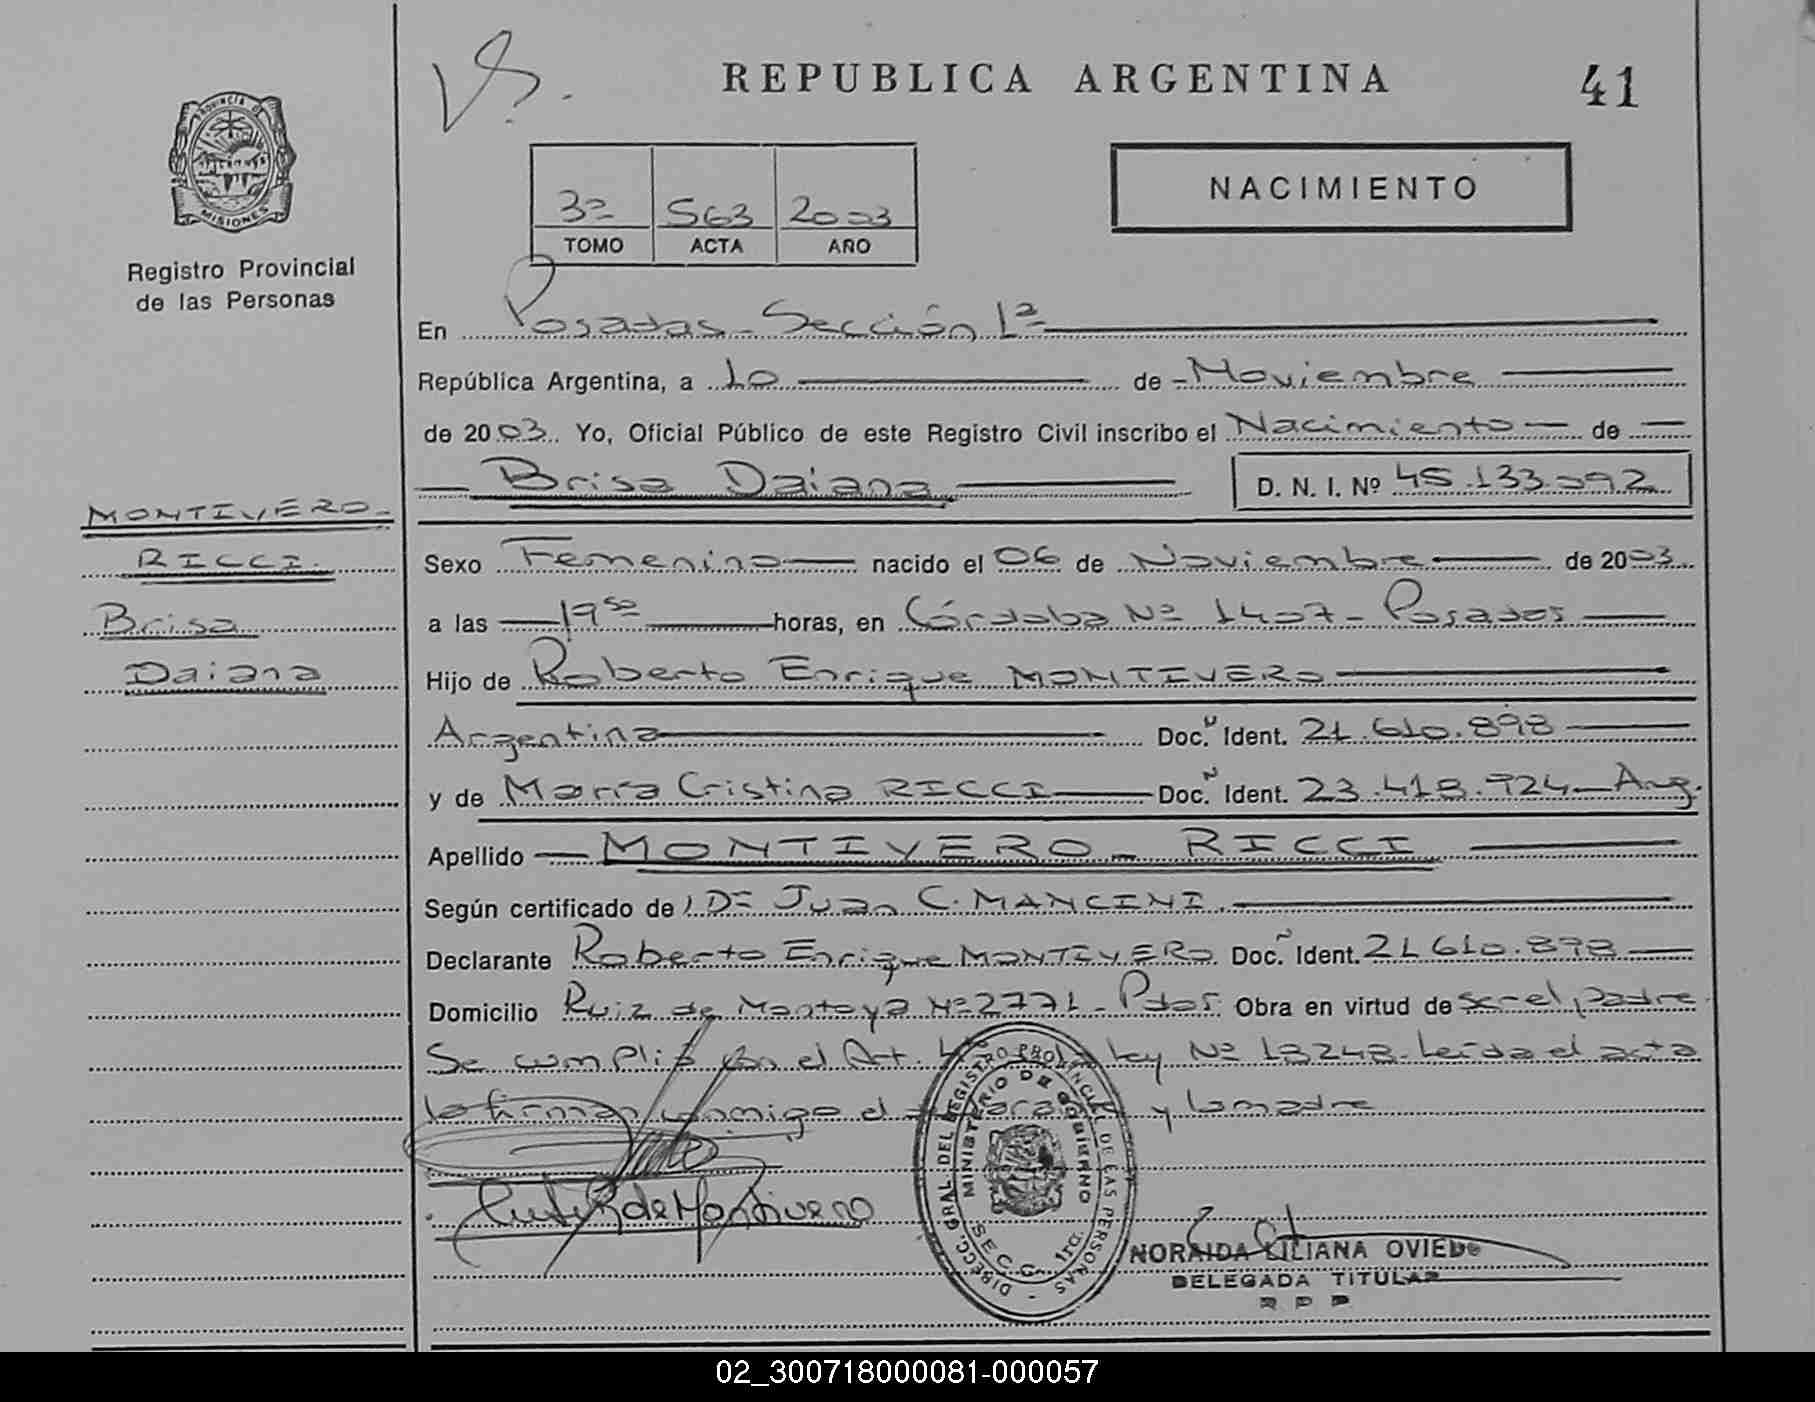 REPUBLICA ARGENTINA
41
PROVINCIA DE
MISIONES
Registro Provincial
de las Personas
NACIMIENTO
3º 563 2003
TOMO ACTA AÑO
En Posadas - Sección 1ª
República Argentina, a 10 de Noviembre
de 2003. Yo, Oficial Público de este Registro Civil inscribo el Nacimiento de
Brisa Daiana D. N. I. Nº 45.133.092
MONTIVERO -
RICCI.
Brisa
Daiana
Sexo Femenino nacido el 06 de Noviembre de 2003
a las 19 50 horas, en Córdoba Nº 1407 - Posadas
Hijo de Roberto Enrique MONTIVERO
Argentina Doc. Ident. 21.610.898
y de María Cristina RICCI Doc. Ident. 23.418.724 - Arg.
Apellido MONTIVERO - RICCI
Según certificado de Dr Juan C. MANCINI.
Declarante Roberto Enrique MONTIVERO Doc. Ident. 21 610.898
Domicilio Ruiz de Montoya Nº 2771 - Pdas. Obra en virtud de ser el padre.
Se cumplió con el Art. Ley Nº 13248. Leída el acta
la firman conmigo el y la madre
DIRECC. GRAL. DEL REGISTRO PROVINCIAL DE LAS PERSONAS -
MINISTERIO DE GOBIERNO
SECC. 1ra.
de Montivero
NORAIDA LILIANA OVIEDO
DELEGADA TITULAR
R P P
02_300718000081-000057